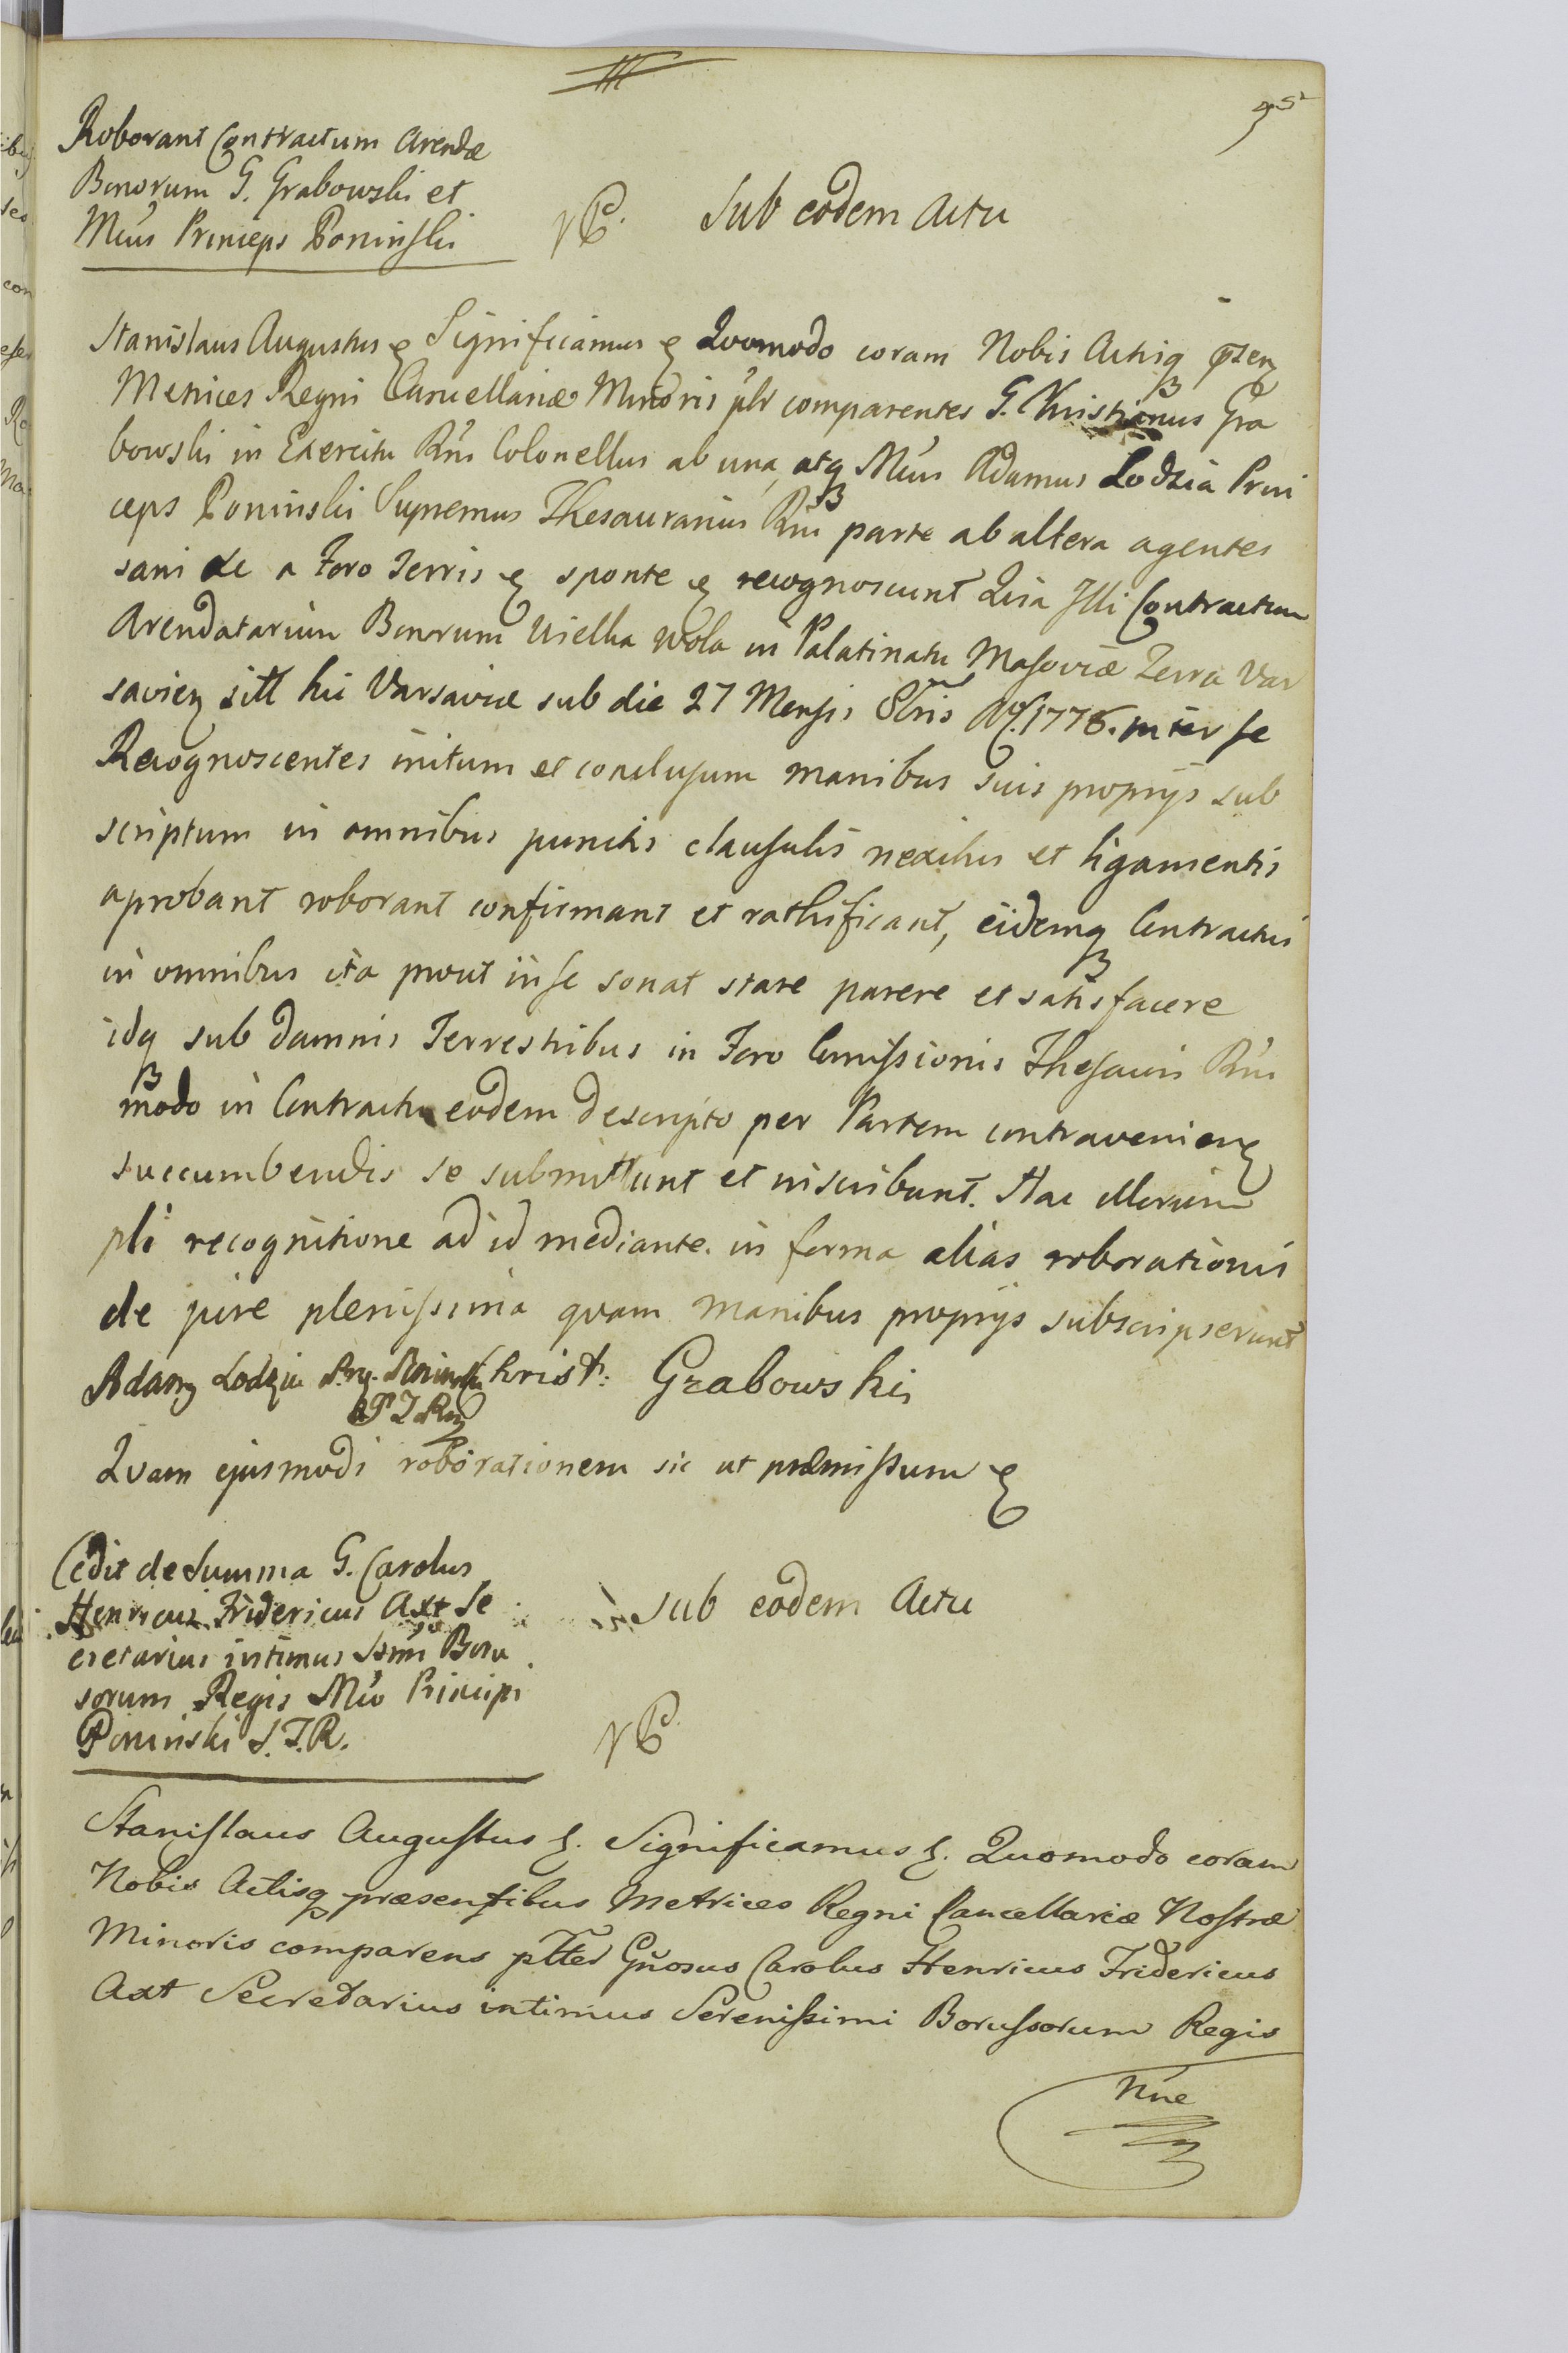 Roborant Contractum Arendæ
Bonorum G. Grabowski et
Mŭs Princeps Poninski
Sub eodem Actu
Stanislaus Augustus & Significamus & Quomodo coram Nobis Actisq
Metrices Regni Cancellariæ Minoris plr comparentes G. Christianus Gra
bowski in Exercitu Rni Colonellus ab una, atq Mŭs Adamus Lodzia Prin
ceps Poninski Supremus Thesaurarius Rni parte ab altera agentes
sani & a Foro Terris & sponte & recognoscunt Quia Illi Contractum
Arendatarium Bonorum Wielka Wola in Palatinatu Masoviæ Terra Var
savien sitt hic Varsaviæ sub die 27 Mensis 8bris 1776. inter se
Recognoscentes initum et conclusum manibus suis proprÿs sub
scriptum in omnibus punctis clausulis nexibus et ligamentis
aprobant roborant confirmant et rathificant, eidemq Contractui
in omnibus ita prout in se sonat stare parere et satisfacere
idq sub damnis Terrestribus in Foro Comissionis Thesauri Rni
modo in Contractu eodem descripto per Partem contravenien
succumbendis se submittunt et inscribunt. Hac illorum
pli recognitione ad id mediante in forma alias roborationis
de jure plenissima quam manibus proprÿs subscripserunt
Adam Lodzia Christ: Grabowski
Quam ejusmodi roborationem sic ut præmissum &
Cedit de Summa G. Carolus
Henricus Fridericus Axt Se
cretarius intimus Ssmi Boru
sorum Regis Mŭo Principi
Poninski S.T.R.
Sub eodem Actu
Stanislaus Augustus &. Significamus &. Quomodo coram
Nobis Actisq præsentibus Metrices Regni Cancellariæ Nostræ
Minoris comparens pltter Gnosus Carolus Henricus Fridericus
Axt Secretarius intimus Serenissimi Borussorum Regis